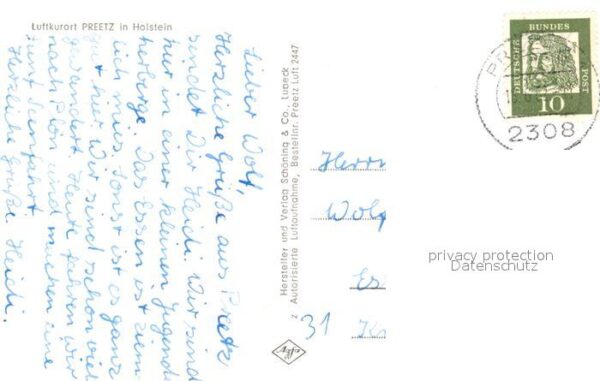 Luftkurort PREETZ in Holstein
Lieber Wolf,
Herzliche Grüße aus Preetz
sendet Dir Heidi. Wir sind
hier in einer kleinen Jugend
herberge. Das Essen ist ziem
lich mies, sonst ist es ganz
gut hier. Wir sind schon viel
gewandert. Heute fahren wir
nach Plön und machen eine
5 Seenfahrt.
Herzliche Grüße Heidi.
Hersteller und Verlag Schöning & Co., Lübeck
Autorisierte Luftaufnahme, Bestellnr. Preetz Luft 2447
Agfa
DEUTSCHE BUNDESPOST
10
2308
Herrn
Wolf
31
privacy protection
Datenschutz